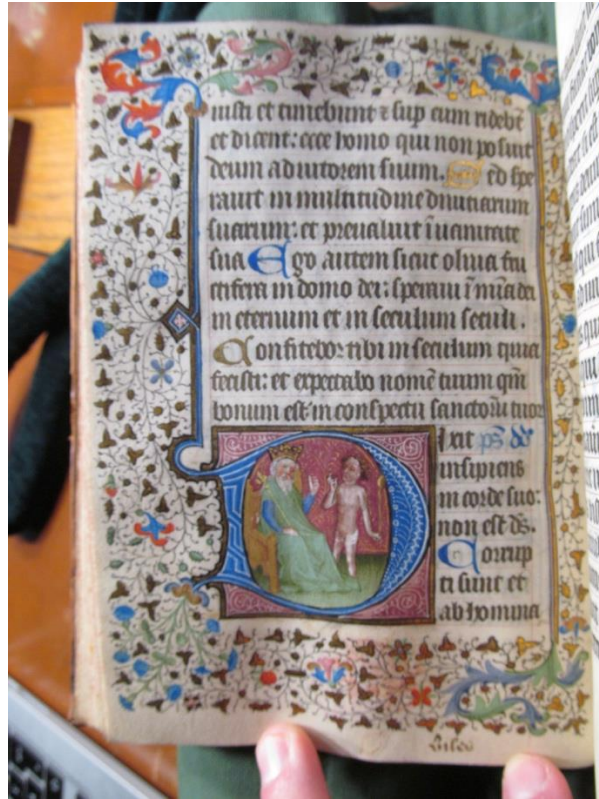 iusti et timebunt ⁊ sup eum ridebt̄
et dicent: ecce homo qui non posuit
deum adiutorem suum. Sed spe
rauit in multitudine diuitiarum
suarum: et preualuit ī uanitate
sua Ego autem sicut oliua fru
ctifera in domo dei: speraui ī mīa dei
in eternum et in seculum seculi.
Confitebor tibi in seculum quia
fecisti: et expectabo nomē tuum qm̄
bonum est in conspectu sanctoru tuor
Dixit ps̄
insipiens
in corde suo:
non est ds̄.
Corrup
ti sunt et
abhomina